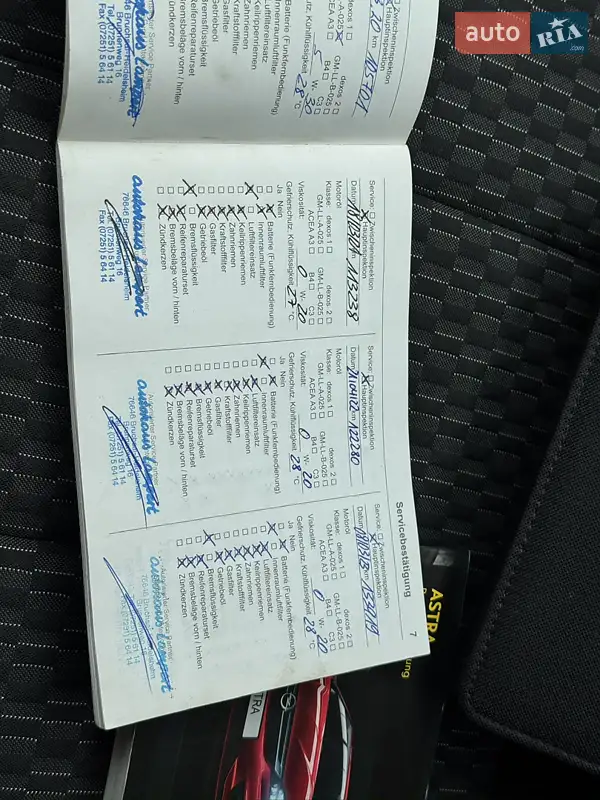 auto RIA .com
Zwischeninspektion
Hauptinspektion
20 km 105701
dexos 1 dexos 2
A-025 GM-LL-B-025
B4 C3
5 W- 30
Kühlflüssigkeit 28 °C
Batterie (Funkfernbedienung)
Innenraumluftfilter
Luftfiltereinsatz
Keilrippenriemen
Zahnriemen
Kraftstofffilter
Gasfilter
Getriebeöl
Bremsflüssigkeit
Reifenreparaturset
Bremsbeläge vorn / hinten
Zündkerzen
Service Partner
autohaus
Brunnenweg 16
76646 Bruchsal-Heidelsheim
(07251) 5 61 14
Fax (07251) 5 64 14
Servicebestätigung 7
Service: Zwischeninspektion
Hauptinspektion
Datum km 113238
Motoröl
Klasse: dexos 1 dexos 2
GM-LL-A-025 GM-LL-B-025
ACEA A3 B4 C3
Viskosität: 0 W- 20
Gefrierschutz, Kühlflüssigkeit 27 °C
Ja Nein
Batterie (Funkfernbedienung)
Innenraumluftfilter
Luftfiltereinsatz
Keilrippenriemen
Zahnriemen
Kraftstofffilter
Gasfilter
Getriebeöl
Bremsflüssigkeit
Reifenreparaturset
Bremsbeläge vorn / hinten
Zündkerzen
Service Partner
autohaus
76646 Bruchsal-Heidelsheim
(07251) 5 61 14
Fax (07251) 5 64 14
Service: Zwischeninspektion
Hauptinspektion
Datum 21.04.22 km 122280
Motoröl
Klasse: dexos 1 dexos 2
GM-LL-A-025 GM-LL-B-025
ACEA A3 B4 C3
Viskosität: 0 W- 20
Gefrierschutz, Kühlflüssigkeit 28 °C
Ja Nein
Batterie (Funkfernbedienung)
Innenraumluftfilter
Luftfiltereinsatz
Keilrippenriemen
Zahnriemen
Kraftstofffilter
Gasfilter
Getriebeöl
Bremsflüssigkeit
Reifenreparaturset
Bremsbeläge vorn / hinten
Zündkerzen
Autorisierter Service Partner
autohaus
Brunnenweg 16
76646 Bruchsal-Heidelsheim
(07251) 5 61 14
Fax (07251) 5 64 14
Service: Zwischeninspektion
Hauptinspektion
Datum km 133019
Motoröl
Klasse: dexos 1 dexos 2
GM-LL-A-025 GM-LL-B-025
ACEA A3 B4 C3
Viskosität: 0 W- 20
Gefrierschutz, Kühlflüssigkeit 28 °C
Ja Nein
Batterie (Funkfernbedienung)
Innenraumluftfilter
Luftfiltereinsatz
Keilrippenriemen
Zahnriemen
Kraftstofffilter
Gasfilter
Getriebeöl
Bremsflüssigkeit
Reifenreparaturset
Bremsbeläge vorn / hinten
Zündkerzen
Service Partner
autohaus
(07251) 5 61 14
Fax (07251) 5 64 14
ASTRA